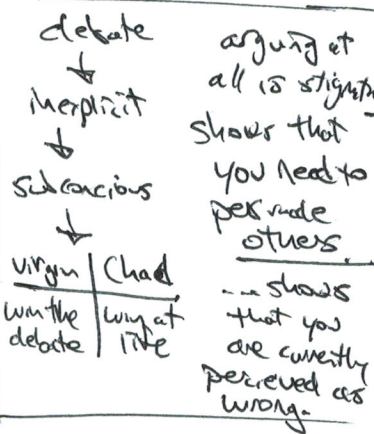 debate
↓
inexplicit
↓
subconcious
↓
virgin | Chad
win the | win at
debate | life
arguing at
all is stigmat
shows that
you need to
persuade
others.
... shows
that you
are currently
percieved as
wrong.